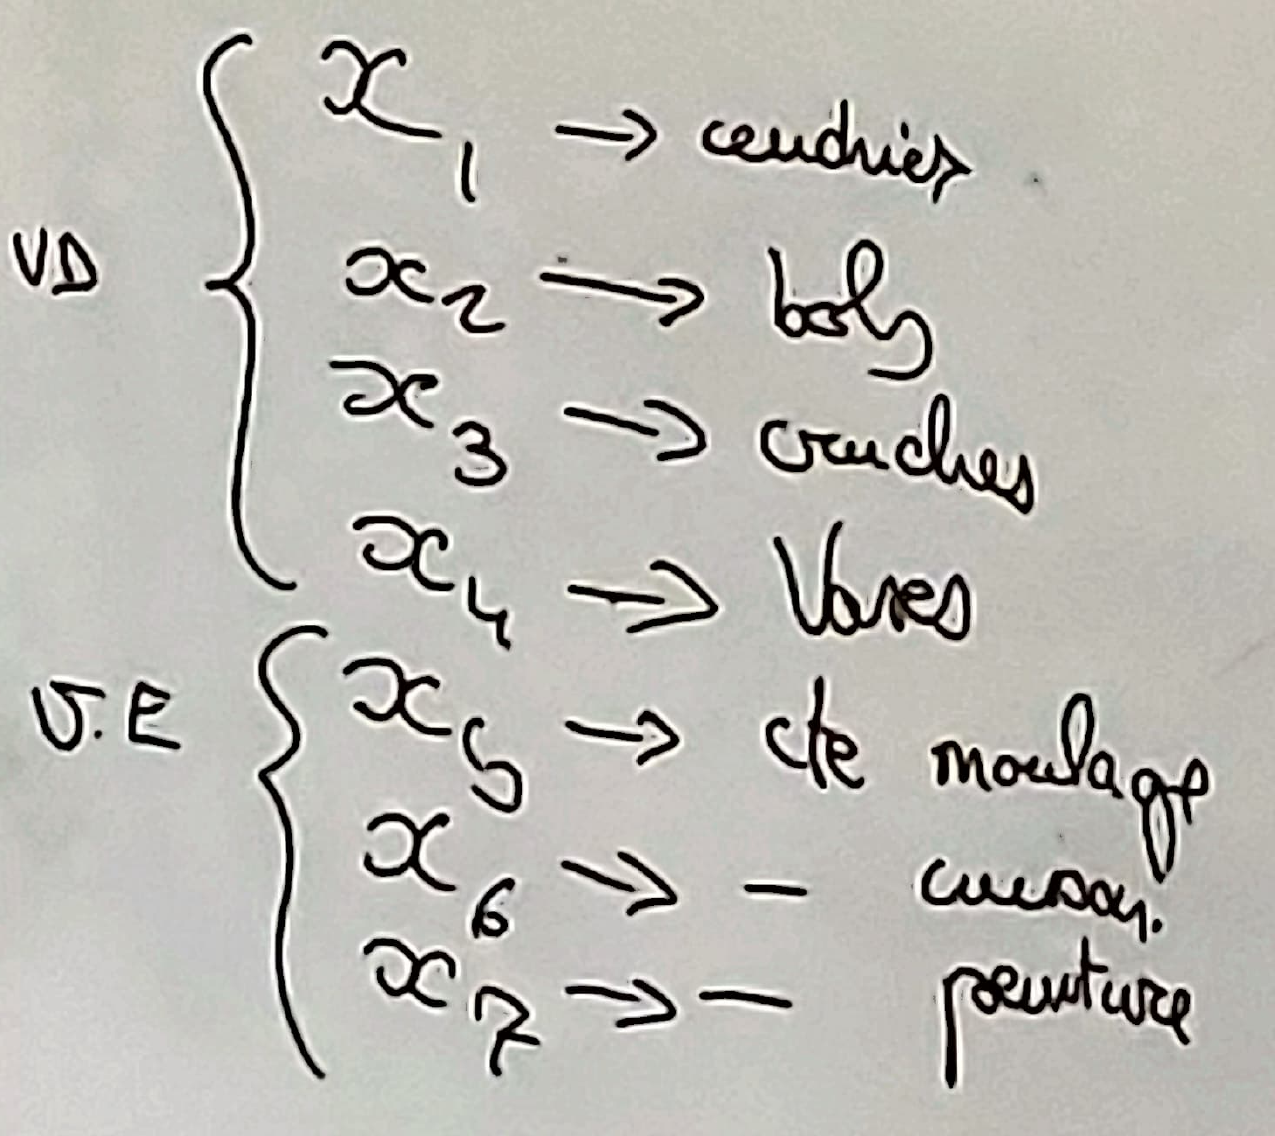 x1 → cendrier
VD x2 → bols
x3 → cruches
x4 → Vases
V.E x5 → cte moulage
x6 → - cuisson.
x7 → - peinture